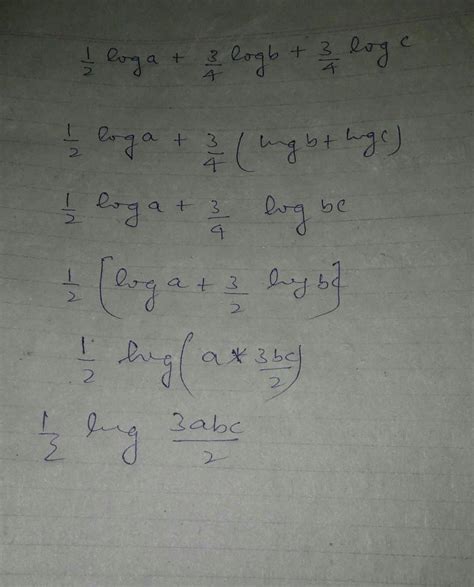 1/2 log a + 3/4 log b + 3/4 log c
1/2 log a + 3/4 (log b + log c)
1/2 log a + 3/4 log bc
1/2 [log a + 3/2 log bc]
1/2 log (a * 3bc/2)
1/2 log 3abc/2